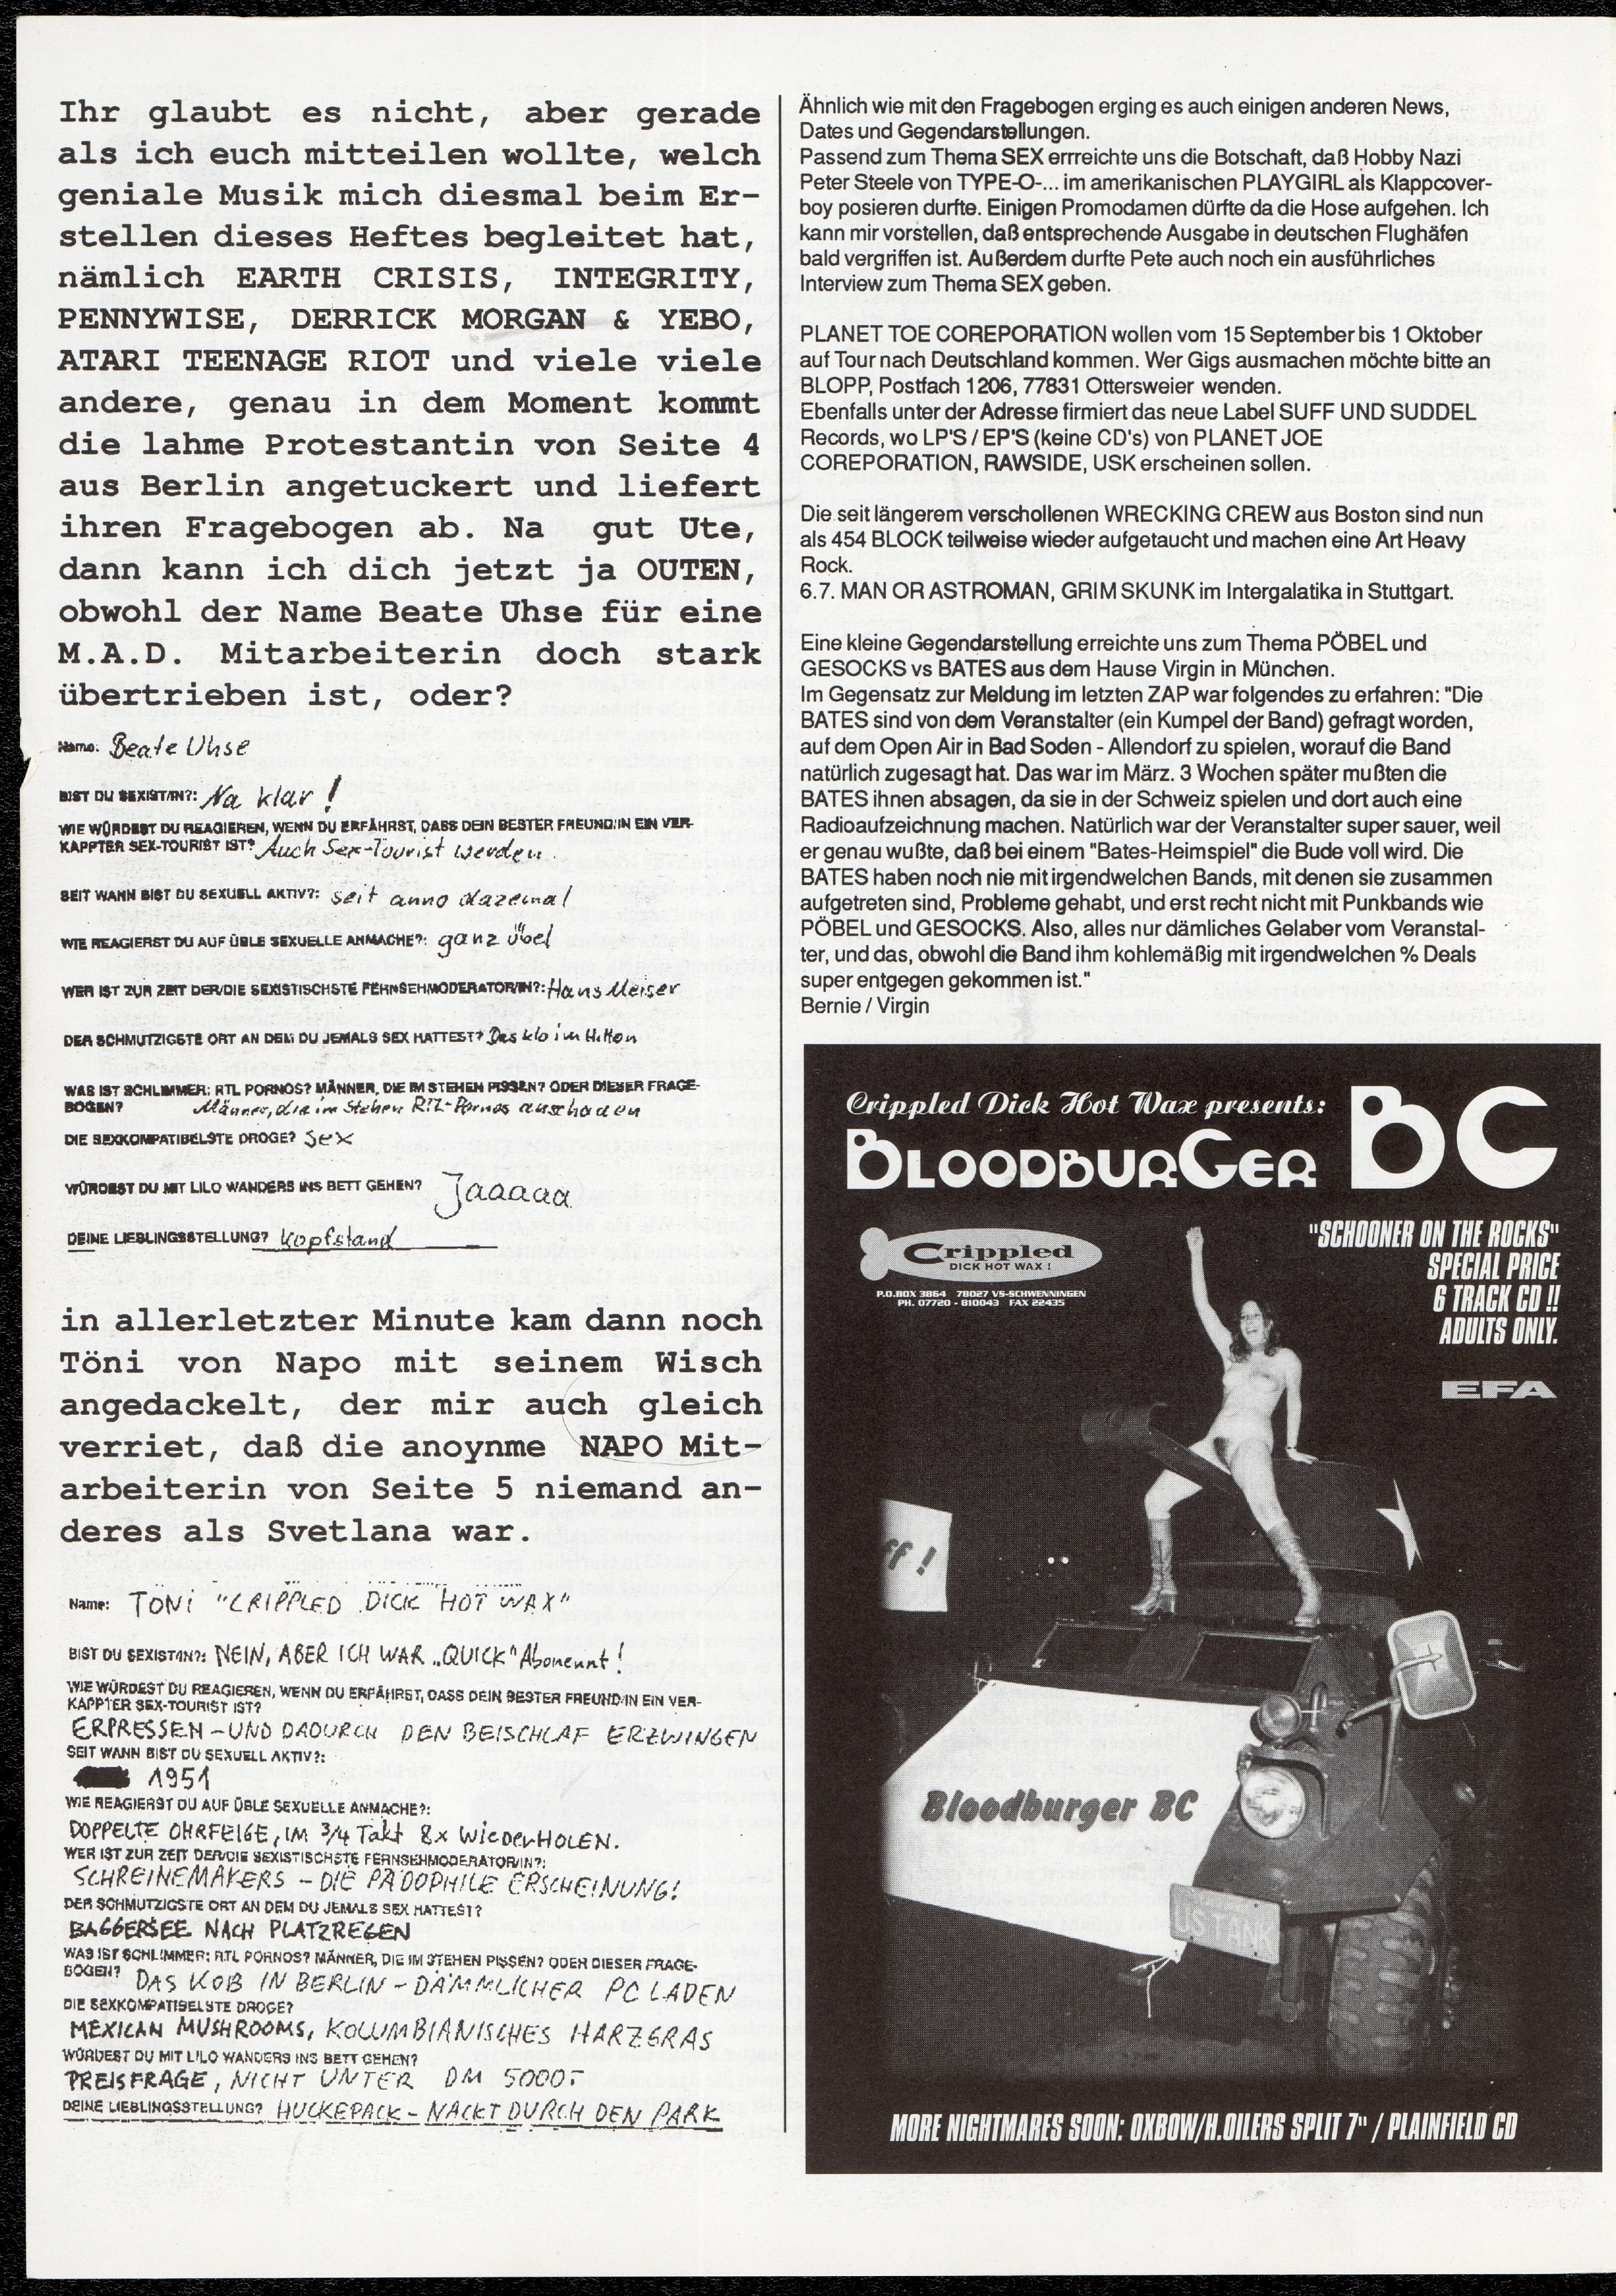 Ihr glaubt es nicht, aber gerade
als ich euch mitteilen wollte, welch
geniale Musik mich diesmal beim Er-
stellen dieses Heftes begleitet hat,
nämlich EARTH CRISIS, INTEGRITY,
PENNYWISE, DERRICK MORGAN & YEBO,
ATARI TEENAGE RIOT und viele viele
andere, genau in dem Moment kommt
die lahme Protestantin von Seite 4
aus Berlin angetuckert und liefert
ihren Fragebogen ab. Na gut Ute,
dann kann ich dich jetzt ja OUTEN,
obwohl der Name Beate Uhse für eine
M.A.D. Mitarbeiterin doch stark
übertrieben ist, oder?
Name: Beate Uhse
BIST DU SEXIST/IN?: Na klar!
WIE WÜRDEST DU REAGIEREN, WENN DU ERFÄHRST, DASS DEIN BESTER FREUND/IN EIN VER-
KAPPTER SEX-TOURIST IST? Auch Sex-Tourist werden.
SEIT WANN BIST DU SEXUELL AKTIV?: seit anno dazemal
WIE REAGIERST DU AUF ÜBLE SEXUELLE ANMACHE?: ganz übel
WER IST ZUR ZEIT DER/DIE SEXISTISCHSTE FERNSEHMODERATOR/IN?: Hans Meiser
DER SCHMUTZIGSTE ORT AN DEM DU JEMALS SEX HATTEST? Das Klo im Hilton
WAS IST SCHLIMMER: RTL PORNOS? MÄNNER, DIE IM STEHEN PISSEN? ODER DIESER FRAGE-
BOGEN? Männer, die im Stehen RTL-Pornos anschauen
DIE SEXKOMPATIBELSTE DROGE? Sex
WÜRDEST DU MIT LILO WANDERS INS BETT GEHEN? Jaaaaa
DEINE LIEBLINGSSTELLUNG? Kopfstand
in allerletzter Minute kam dann noch
Töni von Napo mit seinem Wisch
angedackelt, der mir auch gleich
verriet, daß die anoynme NAPO Mit-
arbeiterin von Seite 5 niemand an-
deres als Svetlana war.
Name: TÖNI "CRIPPLED DICK HOT WAX"
BIST DU SEXIST/IN?: NEIN, ABER ICH WAR "QUICK" Abonennt!
WIE WÜRDEST DU REAGIEREN, WENN DU ERFÄHRST, DASS DEIN BESTER FREUND/IN EIN VER-
KAPPTER SEX-TOURIST IST?
ERPRESSEN - UND DADURCH DEN BEISCHLAF ERZWINGEN
SEIT WANN BIST DU SEXUELL AKTIV?:
1951
WIE REAGIERST DU AUF ÜBLE SEXUELLE ANMACHE?:
DOPPELTE OHRFEIGE, IM 3/4 Takt 8x WIEDERHOLEN.
WER IST ZUR ZEIT DER/DIE SEXISTISCHSTE FERNSEHMODERATOR/IN?:
SCHREINEMAKERS - DIE PÄDOPHILE ERSCHEINUNG!
DER SCHMUTZIGSTE ORT AN DEM DU JEMALS SEX HATTEST?
BAGGERSEE NACH PLATZREGEN
WAS IST SCHLIMMER: RTL PORNOS? MÄNNER, DIE IM STEHEN PISSEN? ODER DIESER FRAGE-
BOGEN? DAS KOB IN BERLIN - DÄMMLICHER PC LADEN
DIE SEXKOMPATIBELSTE DROGE?
MEXICAN MUSHROOMS, KOLUMBIANISCHES HARZGRAS
WÜRDEST DU MIT LILO WANDERS INS BETT GEHEN?
PREISFRAGE, NICHT UNTER DM 5000,-
DEINE LIEBLINGSSTELLUNG? HUCKEPACK - NACKT DURCH DEN PARK
Ähnlich wie mit den Fragebogen erging es auch einigen anderen News,
Dates und Gegendarstellungen.
Passend zum Thema SEX errreichte uns die Botschaft, daß Hobby Nazi
Peter Steele von TYPE-O-... im amerikanischen PLAYGIRL als Klappcover-
boy posieren durfte. Einigen Promodamen dürfte da die Hose aufgehen. Ich
kann mir vorstellen, daß entsprechende Ausgabe in deutschen Flughäfen
bald vergriffen ist. Außerdem durfte Pete auch noch ein ausführliches
Interview zum Thema SEX geben.
PLANET TOE COREPORATION wollen vom 15 September bis 1 Oktober
auf Tour nach Deutschland kommen. Wer Gigs ausmachen möchte bitte an
BLOPP, Postfach 1206, 77831 Ottersweier wenden.
Ebenfalls unter der Adresse firmiert das neue Label SUFF UND SUDDEL
Records, wo LP'S / EP'S (keine CD's) von PLANET JOE
COREPORATION, RAWSIDE, USK erscheinen sollen.
Die seit längerem verschollenen WRECKING CREW aus Boston sind nun
als 454 BLOCK teilweise wieder aufgetaucht und machen eine Art Heavy
Rock.
6.7. MAN OR ASTROMAN, GRIM SKUNK im Intergalatika in Stuttgart.
Eine kleine Gegendarstellung erreichte uns zum Thema PÖBEL und
GESOCKS vs BATES aus dem Hause Virgin in München.
Im Gegensatz zur Meldung im letzten ZAP war folgendes zu erfahren: "Die
BATES sind von dem Veranstalter (ein Kumpel der Band) gefragt worden,
auf dem Open Air in Bad Soden - Allendorf zu spielen, worauf die Band
natürlich zugesagt hat. Das war im März. 3 Wochen später mußten die
BATES ihnen absagen, da sie in der Schweiz spielen und dort auch eine
Radioaufzeichnung machen. Natürlich war der Veranstalter super sauer, weil
er genau wußte, daß bei einem "Bates-Heimspiel" die Bude voll wird. Die
BATES haben noch nie mit irgendwelchen Bands, mit denen sie zusammen
aufgetreten sind, Probleme gehabt, und erst recht nicht mit Punkbands wie
PÖBEL und GESOCKS. Also, alles nur dämliches Gelaber vom Veranstal-
ter, und das, obwohl die Band ihm kohlemäßig mit irgendwelchen % Deals
super entgegen gekommen ist."
Bernie / Virgin
Crippled Dick Hot Wax presents:
BLOODBURGER BC
Crippled
DICK HOT WAX !
P.O.BOX 3864 78027 VS-SCHWENNINGEN
PH. 07720 - 810043 FAX 22435
"SCHOONER ON THE ROCKS"
SPECIAL PRICE
6 TRACK CD !!
ADULTS ONLY.
EFA
ff !
Bloodburger BC
US TANK
MORE NIGHTMARES SOON: OXBOW/H.OILERS SPLIT 7" / PLAINFIELD CD